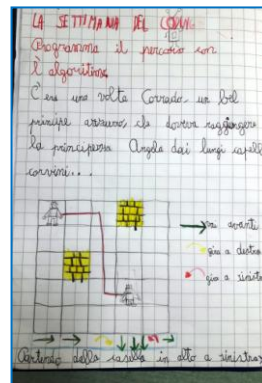 LA SETTIMANA DEL CODING
Programma il percorso con
l'algoritmo
C'era una volta Corrado, un bel
principe azzurro, che doveva raggiungere
la principessa Angela dai lunghi capelli
corvini...
va avanti
gira a destra
gira a sinistra
Partendo dalla casella in alto a sinistra